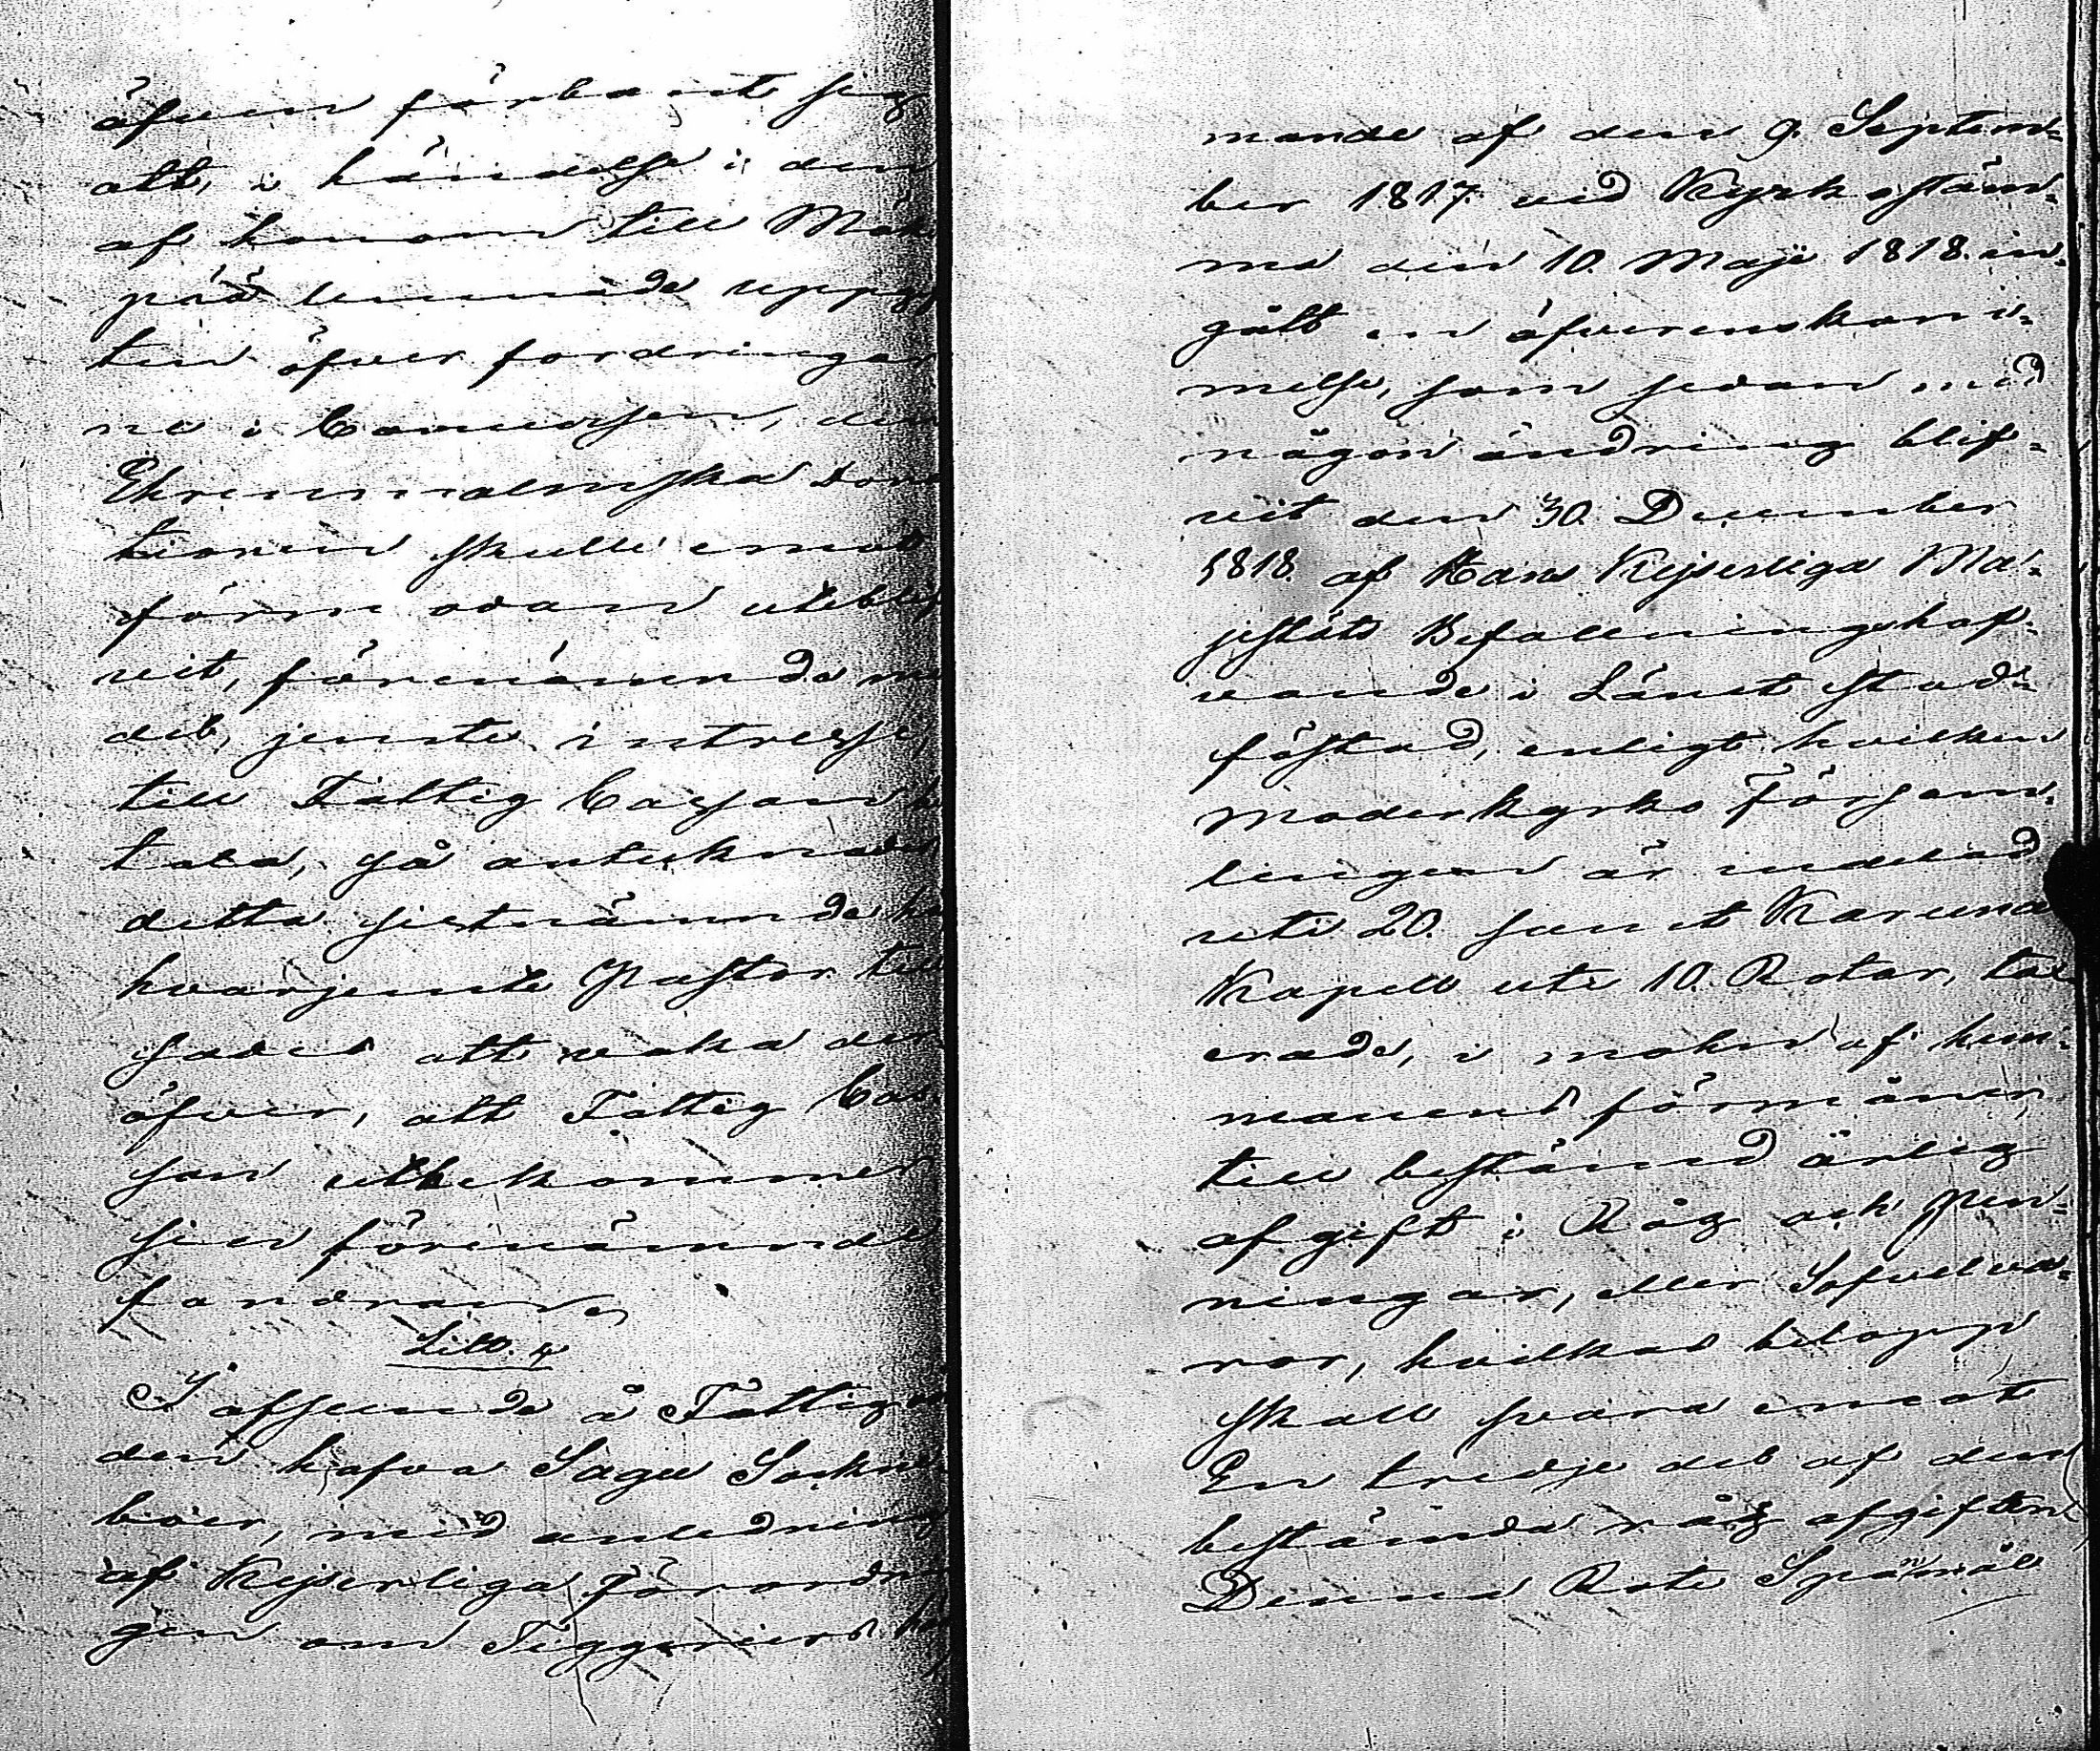 äfven förbant sig
att, i händelse i den
af honom till
lemnade uppgif
ten öfver fordringar
ne i Concursen, den
Ehrenmalmska Dona
tionen skulle emot
förmodan uteblif
vit, förenämnda me
del, jemte intresse,
till Fattig Cassan be
tala, så antecknades
detta sistnämnda här
hvarjemte Pastor till
sades att vaka der
öfver, att Fattig Cas
san utbekommer
sin förenämnde
fordran.
Litt. 4
I afseende å Fattigvår
den hafva Sagu Sockne
boer, med anledning
af Kejserliga Förordnin
gen om Tiggeriers hä
mande af den 9. Septem=
ber 1817. vid Kyrkostäm=
ma den 10. Maji 1818. in=
gått en öfverenskom=
melse, som sedan med
någon ändring blif=
vit den 30 December
1818. af Hans Kejserliga Ma=
jestäts Befallningshaf=
vande i Länet stad=
fästad, enligt hvilken
Moderkyrko Försam=
lingen är indelad
uti 20. samt Karuna
Kapell uti 10. Rotar, tax
erade, i mohn af hem=
manens förmåner,
till bestämd årlig
afgift i Råg och Pen=
ningar, eller Sofvelva=
ror, hvilkas belopp
skall svara emot
En tredje del af den
bestämda råg afgiften
Denna Rote Spanmål